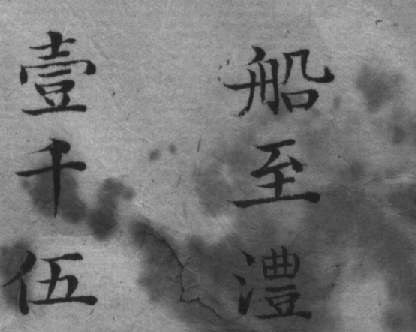 船至澧
壹千伍